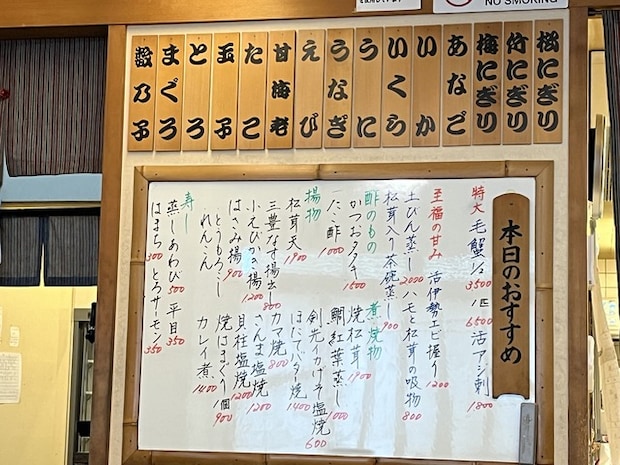 NO SMOKING
松にぎり
竹にぎり
梅にぎり
あなご
いか
いくら
うに
うなぎ
えび
甘海老
たこ
玉子
とろ
まぐろ
数乃子
本日のおすすめ
特大 毛蟹 1/2 3500 1匹 6500 活アジ刺 1800
至福の甘み 活伊勢エビ握り 1200
土びん蒸し 2000 ハモと松茸の吸物 800
松茸入り茶碗蒸し 900
酢のもの
かつおタタキ 1500
たこ酢 1000
煮焼物
焼松茸 1900
鯛紅葉蒸し 1000
剣先イカげそ塩焼 600
ほたてバター焼 1400
さんま塩焼 1200
カマ焼 800
貝柱塩焼 1200
焼はまぐり 1個 900
カレイ煮 1400
揚物
松茸天 1900
三豊なす揚出 800
小えび 揚 1200
はさみ揚 900
とうもろこし
れんこん
寿し
蒸しあわび 500 平目 350
はまち 300 とろサーモン 350